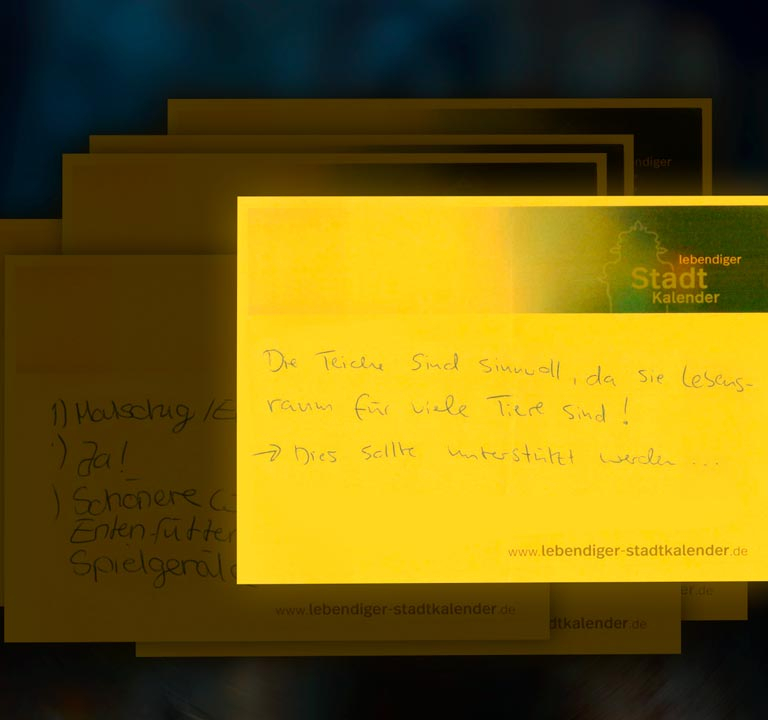 ndiger
lebendiger
Stadt
Kalender
Die Teiche sind sinnvoll, da sie Lebens-
raum für viele Tiere sind!
→ Dies sollte unterstützt werden ...
www.lebendiger-stadtkalender.de
1) Matschig /E
) Ja!
) Schönere
Enten füttern
Spielgerät
www.lebendiger-stadtkalender.de
dtkalender.de
er.de